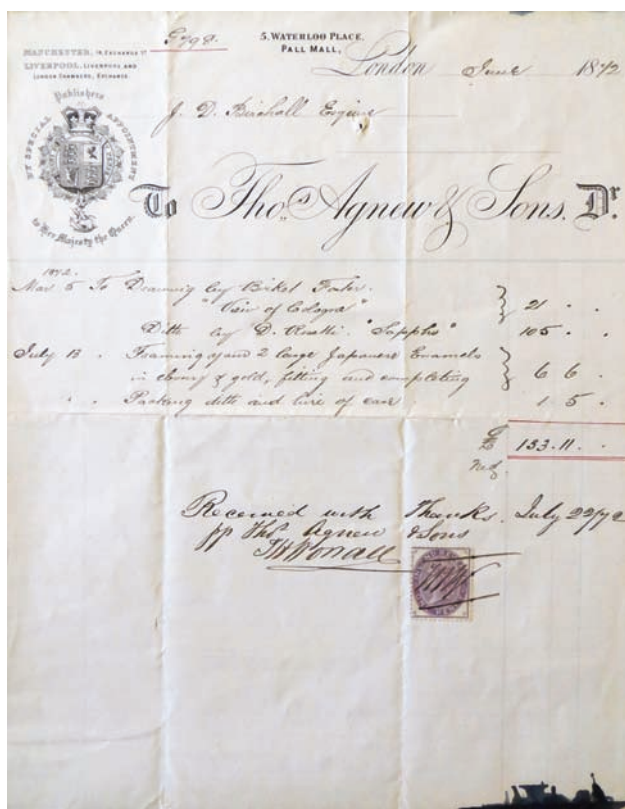 5, WATERLOO PLACE,
PALL MALL,
MANCHESTER, 14, EXCHANGE ST
LIVERPOOL, LIVERPOOL AND
LONDON CHAMBERS, EXCHANGE.
London June 1872
Publishers
BY SPECIAL APPOINTMENT
to Her Majesty the Queen.
J. D. Birchall Esquire
To Thos. Agnew & Sons. Dr.
1872.
Mar 5 To Drawing by Birket Foster.
"View of Cologne" 21 . .
Ditto by D. Rosetti. "Sappho" 105 . .
July 13 . Framing of and 2 large Japanese Enamels
in ebony & gold, fitting and completing 6 6 .
. . Packing ditto and hire of case 1 5 .
£ 133.11. .
Received with Thanks. July 22/72
pp Thos Agnew & Sons